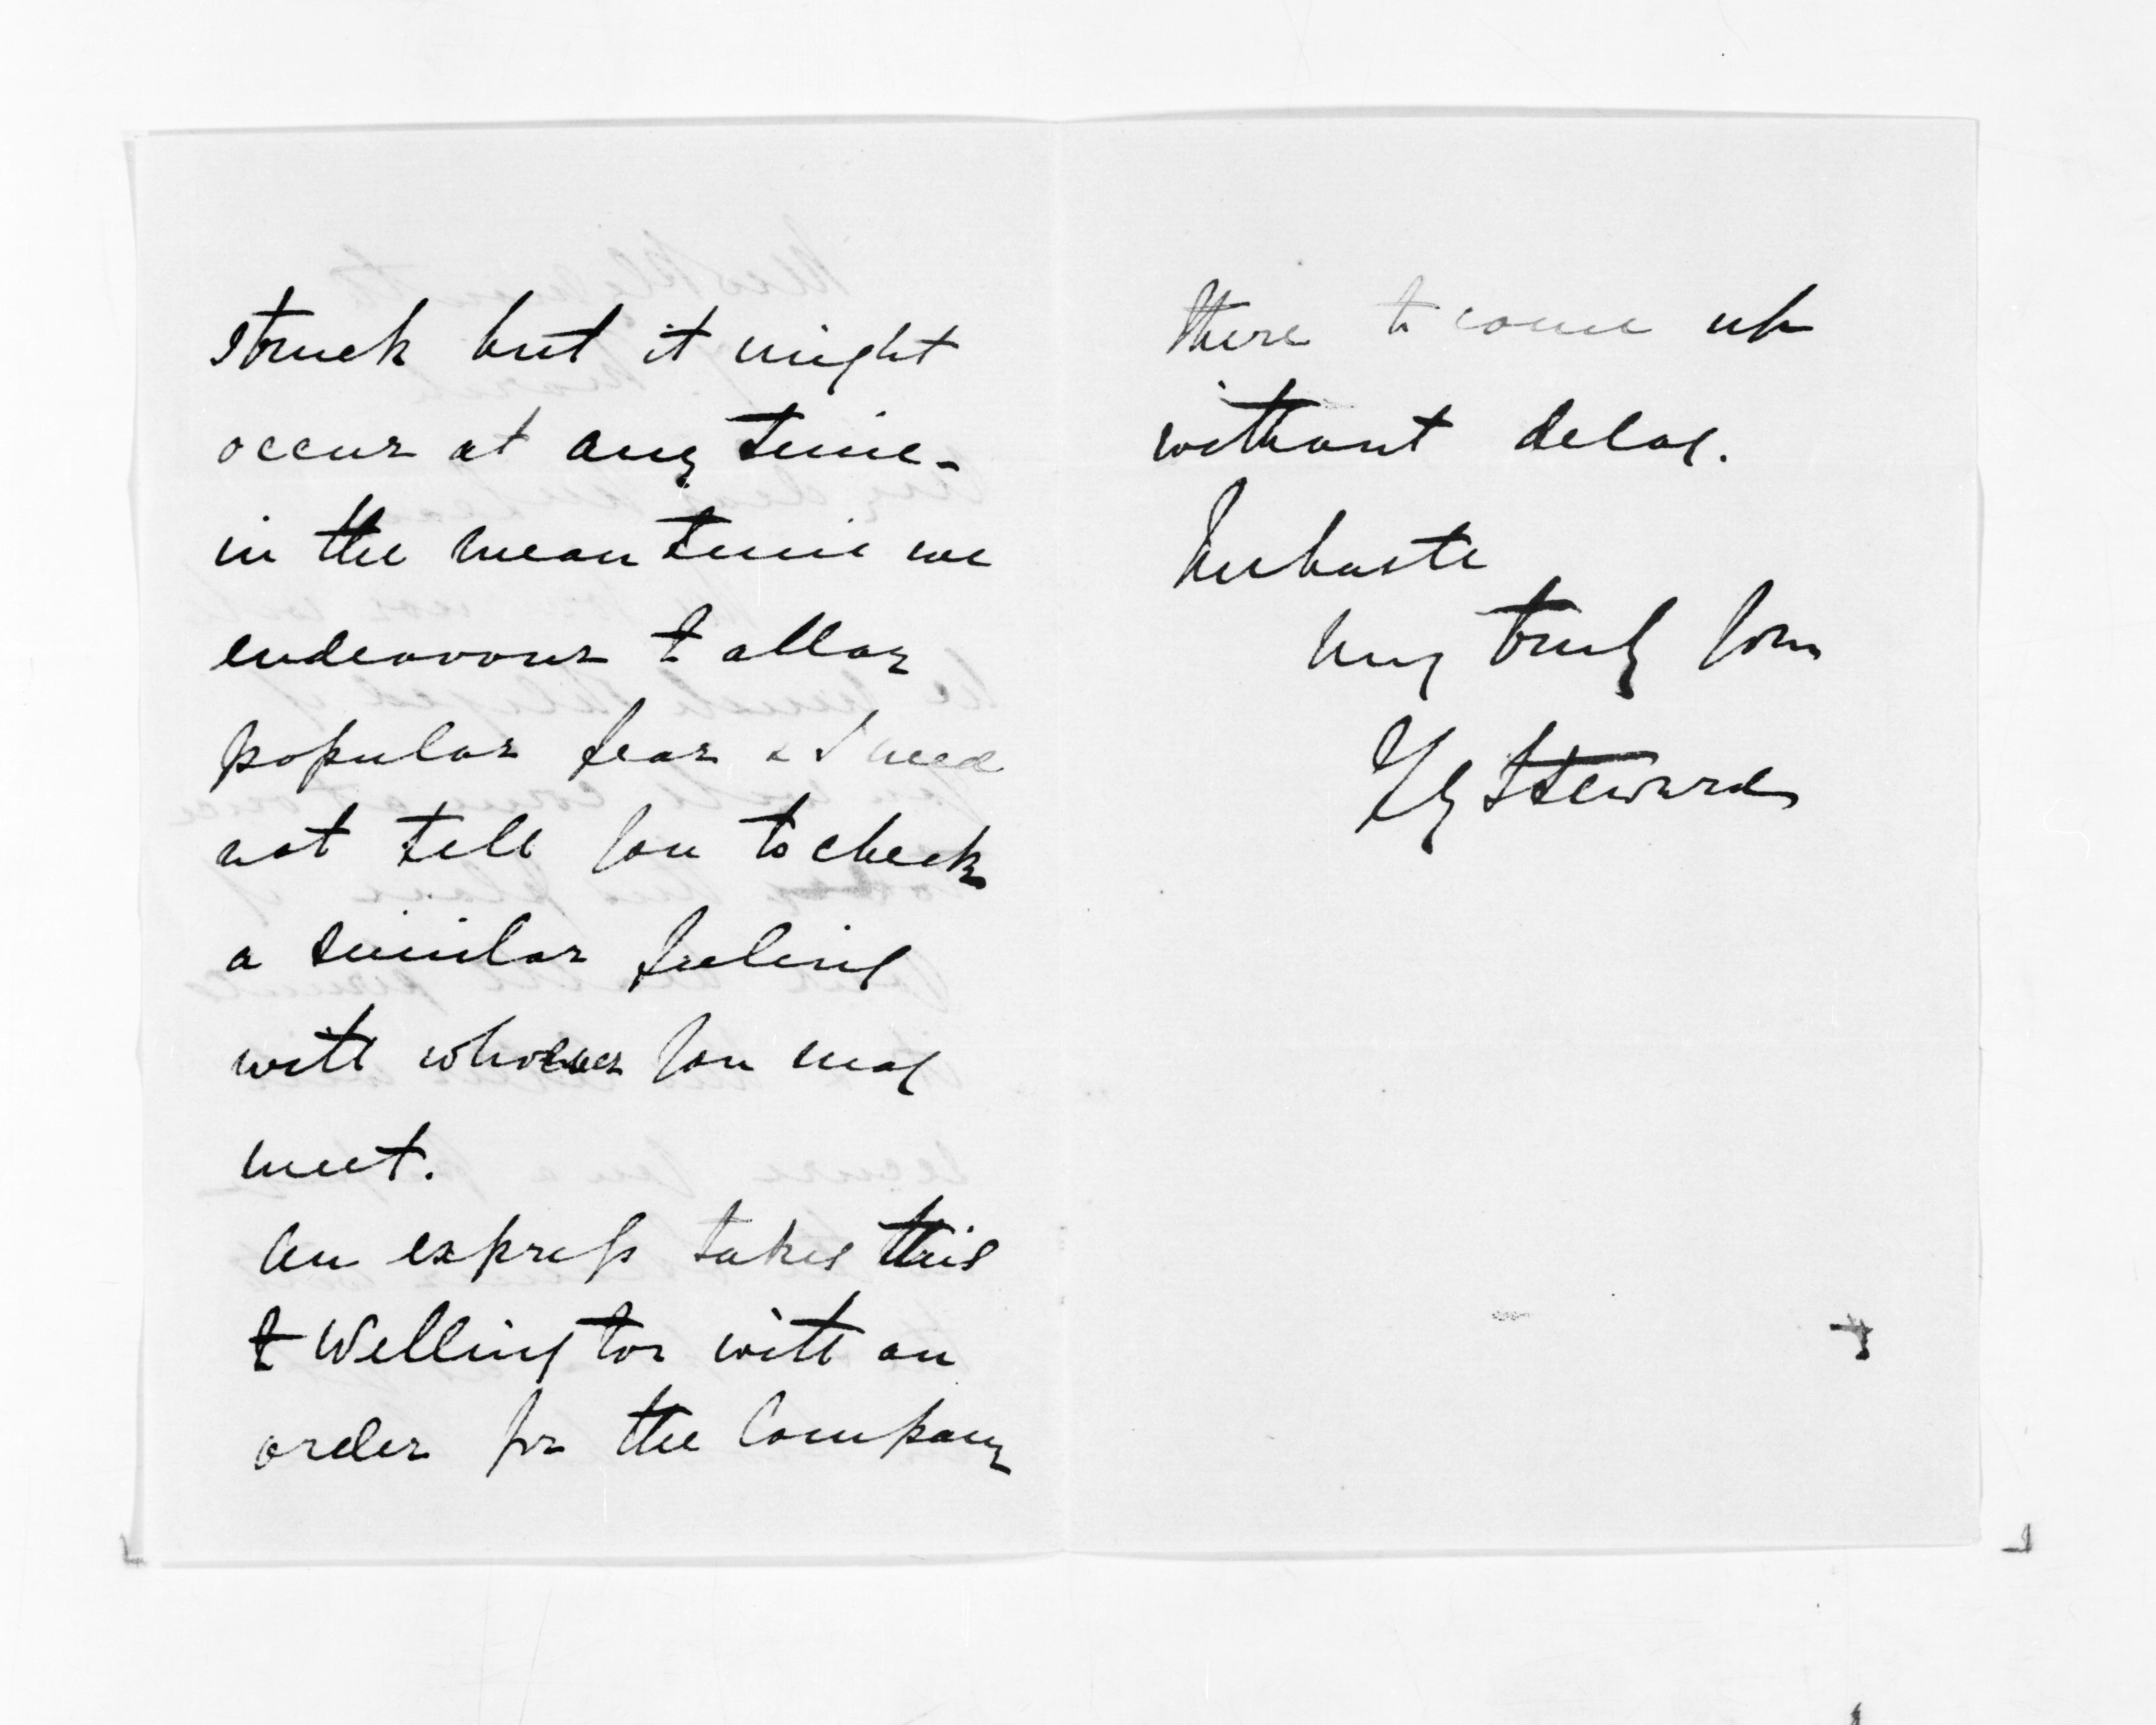 struck but it might
occur at any time -
in the mean time we
endeavour to allay
popular fear & I need
not tell you to check
a similar feeling
with whoever you may
meet.
An express takes this
to Wellington with an
order for the Company
there to come up
without delay.
In haste
Very truly yours
Steward